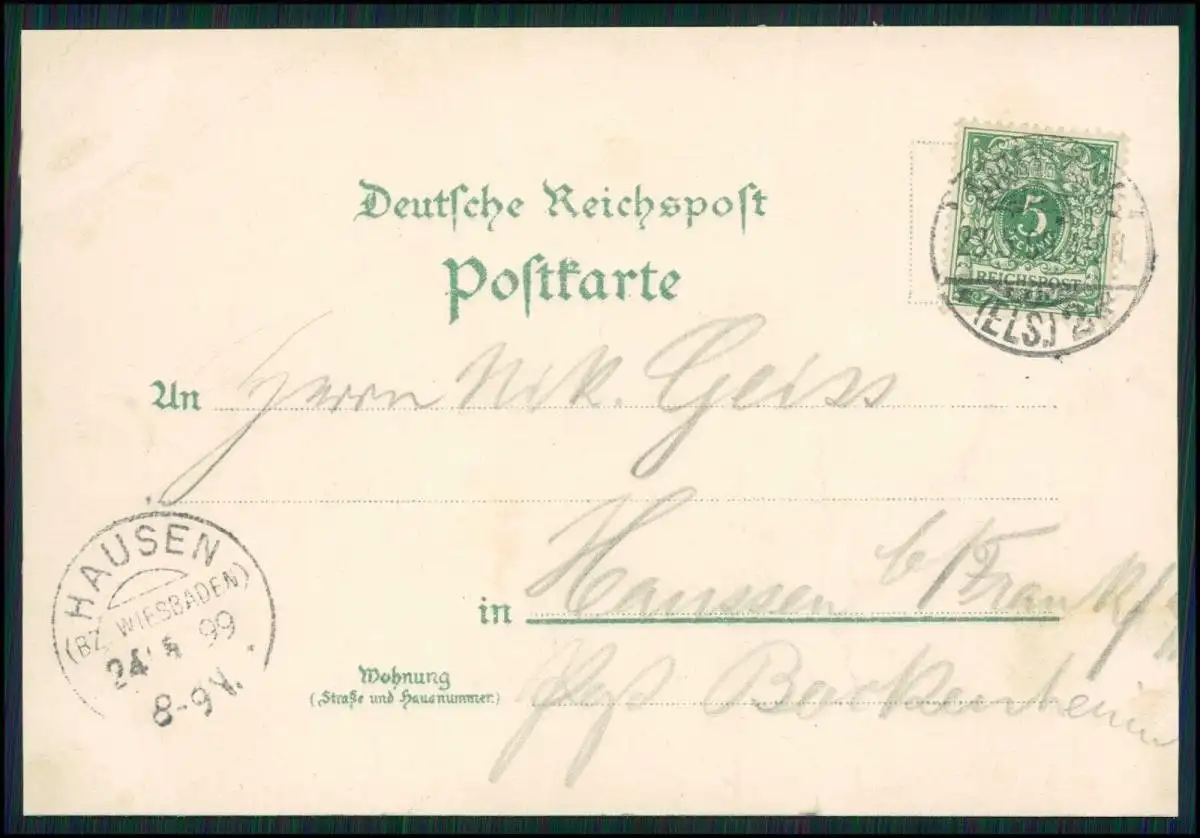 Deutsche Reichspost
Postkarte
5
PFENNIG
REICHSPOST
(ELS.)
An Herrn Nik. Geiss
in Haussen b/Frankf/
Wohnung
(Straße und Hausnummer.)
Post Bockenheim
HAUSEN
(BZ. WIESBADEN)
24 5 99
8-9 V.